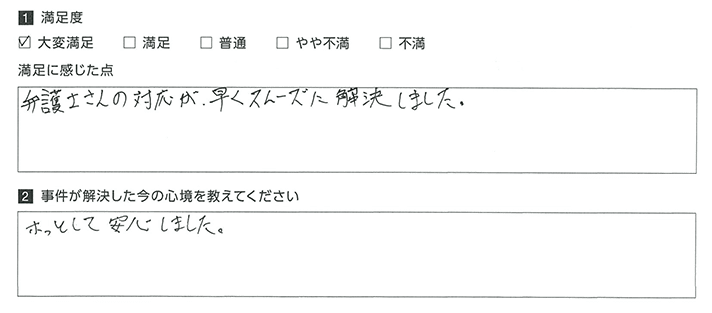 1 満足度
☑ 大変満足 □ 満足 □ 普通 □ やや不満 □ 不満
満足に感じた点
弁護士さんの対応が、早くスムーズに解決しました。
2 事件が解決した今の心境を教えてください
ホッとして安心しました。